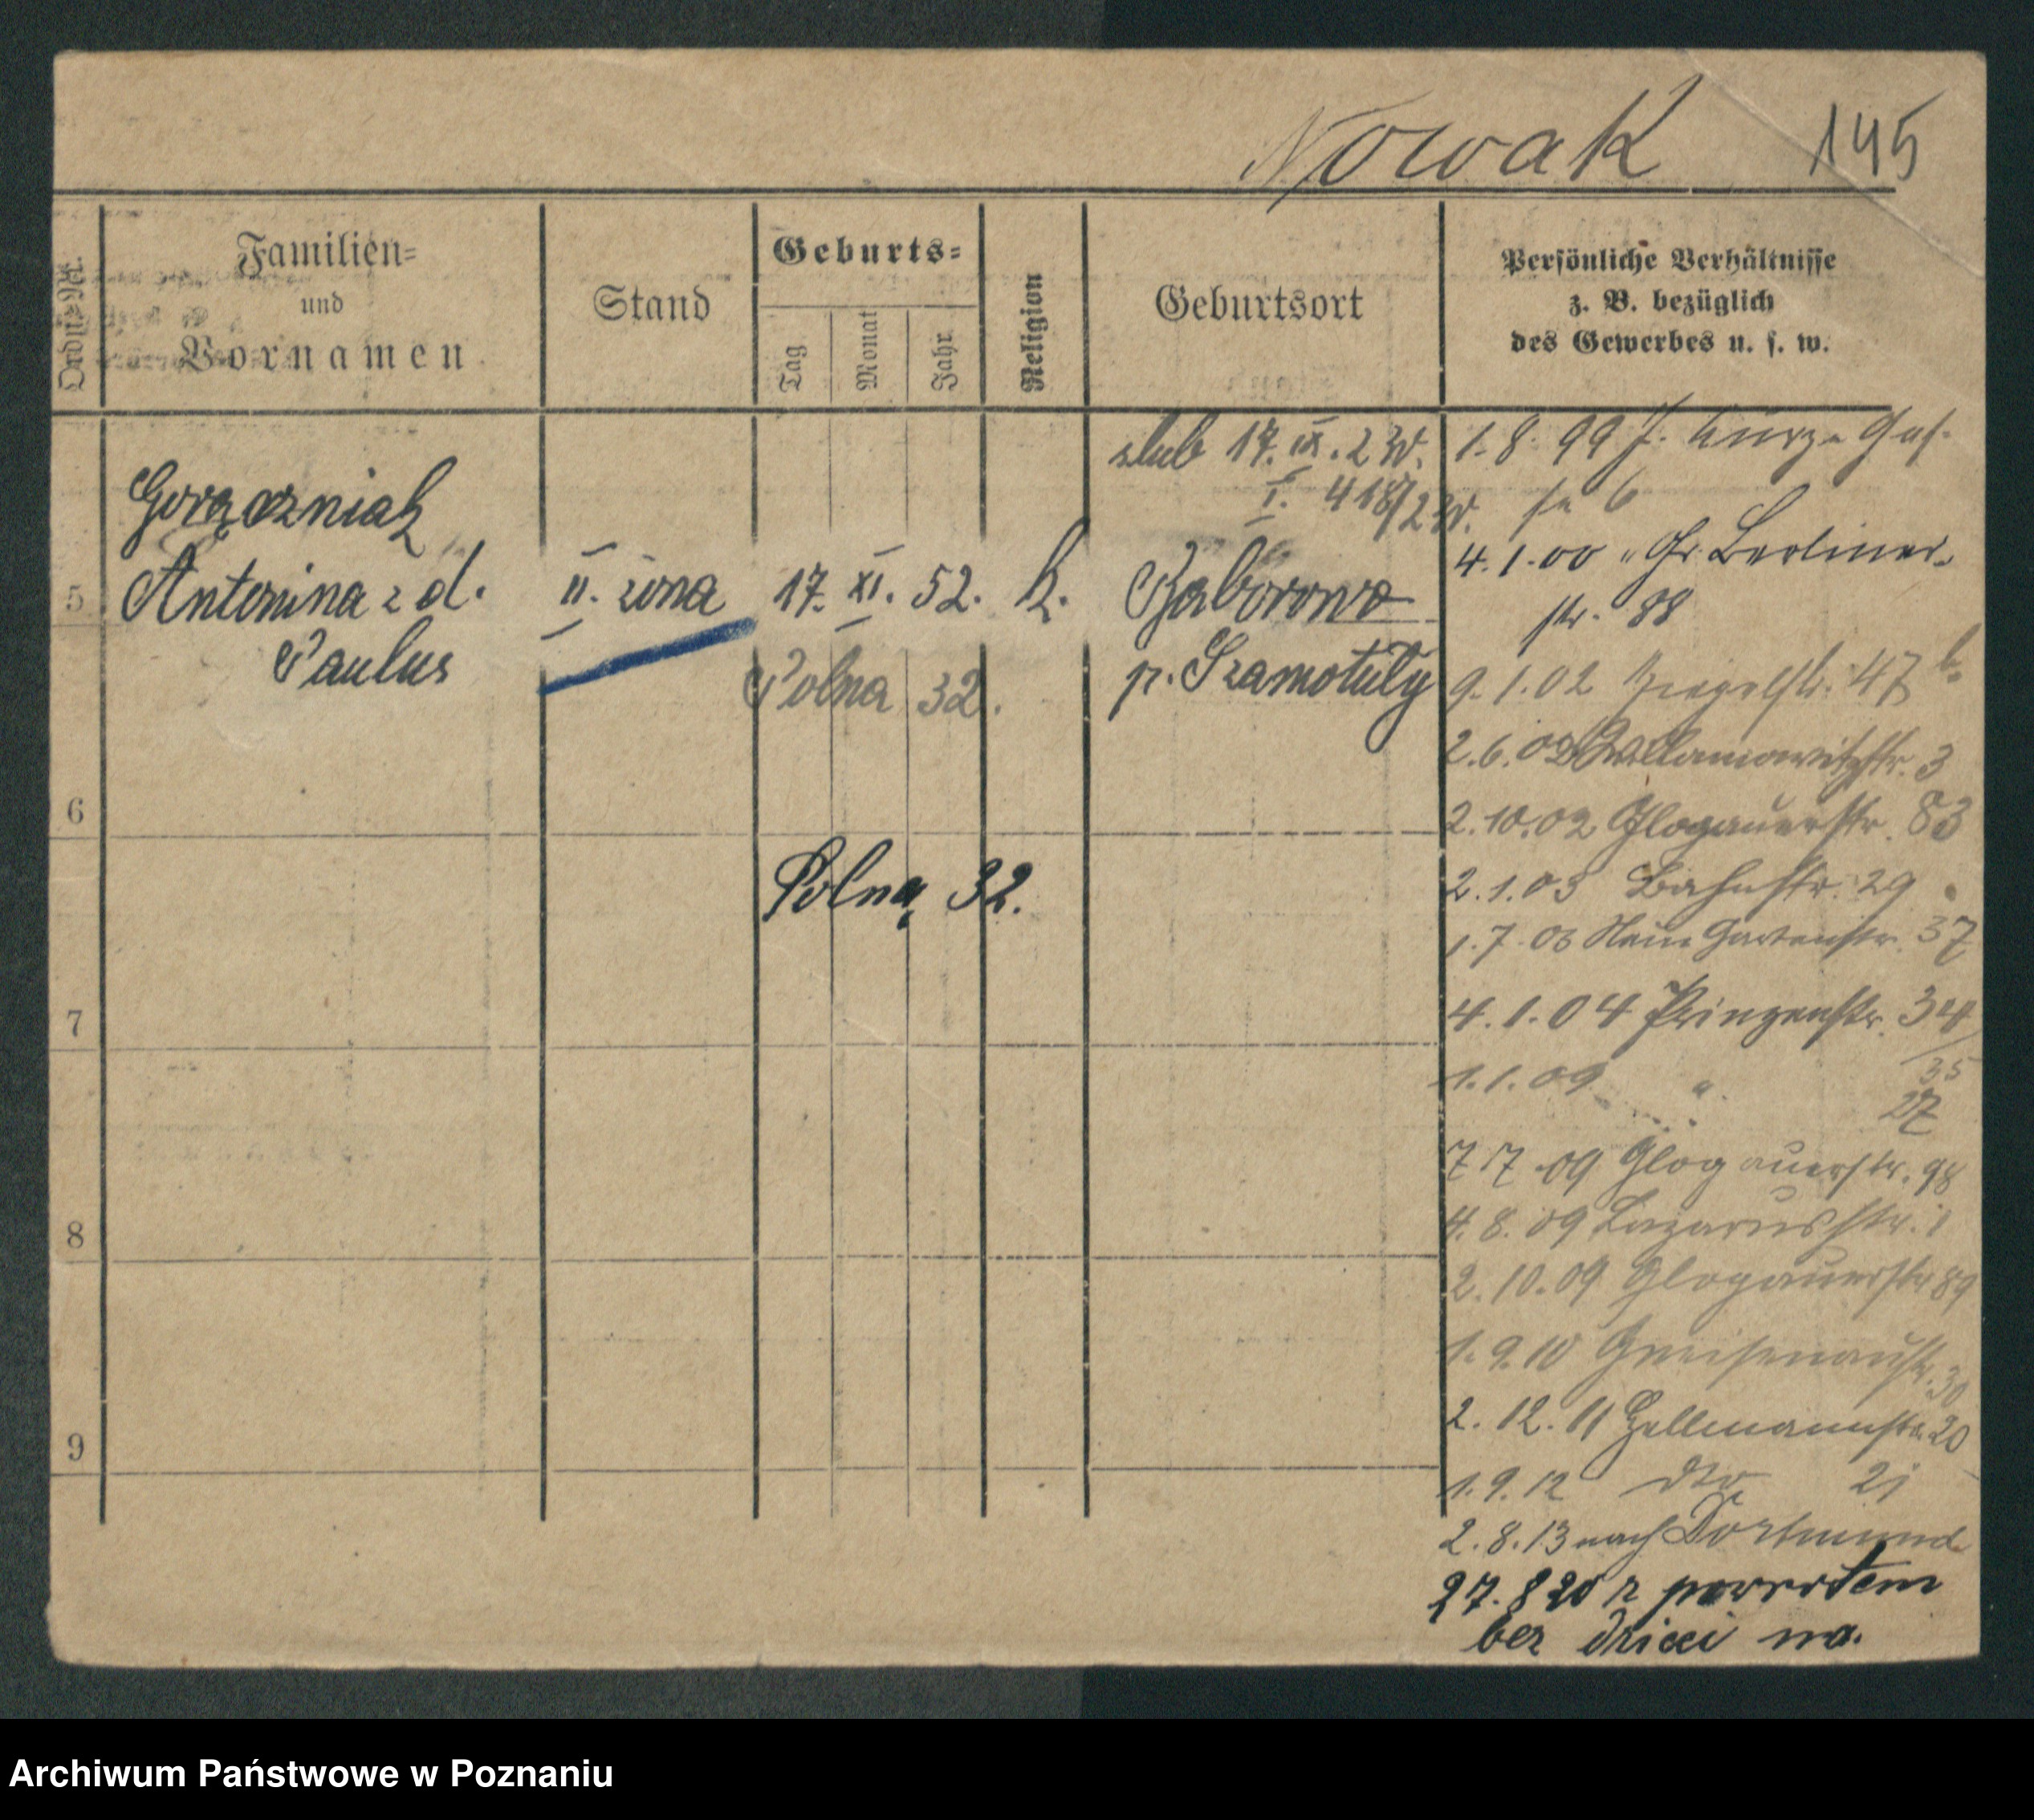 Nowak 145
Ordn=Nr.
Familien=
und
Vornamen
Stand
Geburts=
Tag
Monat
Jahr
Religion
Geburtsort
Persönliche Verhältnisse
z. B. bezüglich
des Gewerbes u. s. w.
5
Gorączniak
Antonina z d.
Paulus
II. żona
17. XI. 52.
k.
ślub 17. IX. 23r.
I. 418/23r.
Baborowo
p. Szamotuły
Polna 32.
6
Polna 32.
7
8
9
1.8.99 J.
6
4.1.00 " Gr. Berliner-
str. 88
9.1.02 47
2.6.02 Willamowitzstr. 3
2.10.02 Glogauerstr. 83
2.1.03 Bahnstr. 29
1.7.03 Gartenstr. 37
4.1.04 Prinzenstr. 34/
35
1.1.09 " 27
7.7.09 Glogauerstr. 98
4.8.09 Lazarusstr. 1
2.10.09 Glogauerstr 89
1.9.10 Gneisenaustr. 30
2.12.11 Hellmannstr. 20
1.9.12 dto 21
2.8.13 nach Dortmund
27.8 20 z powrotem
bez dzieci na.
Archiwum Państwowe w Poznaniu